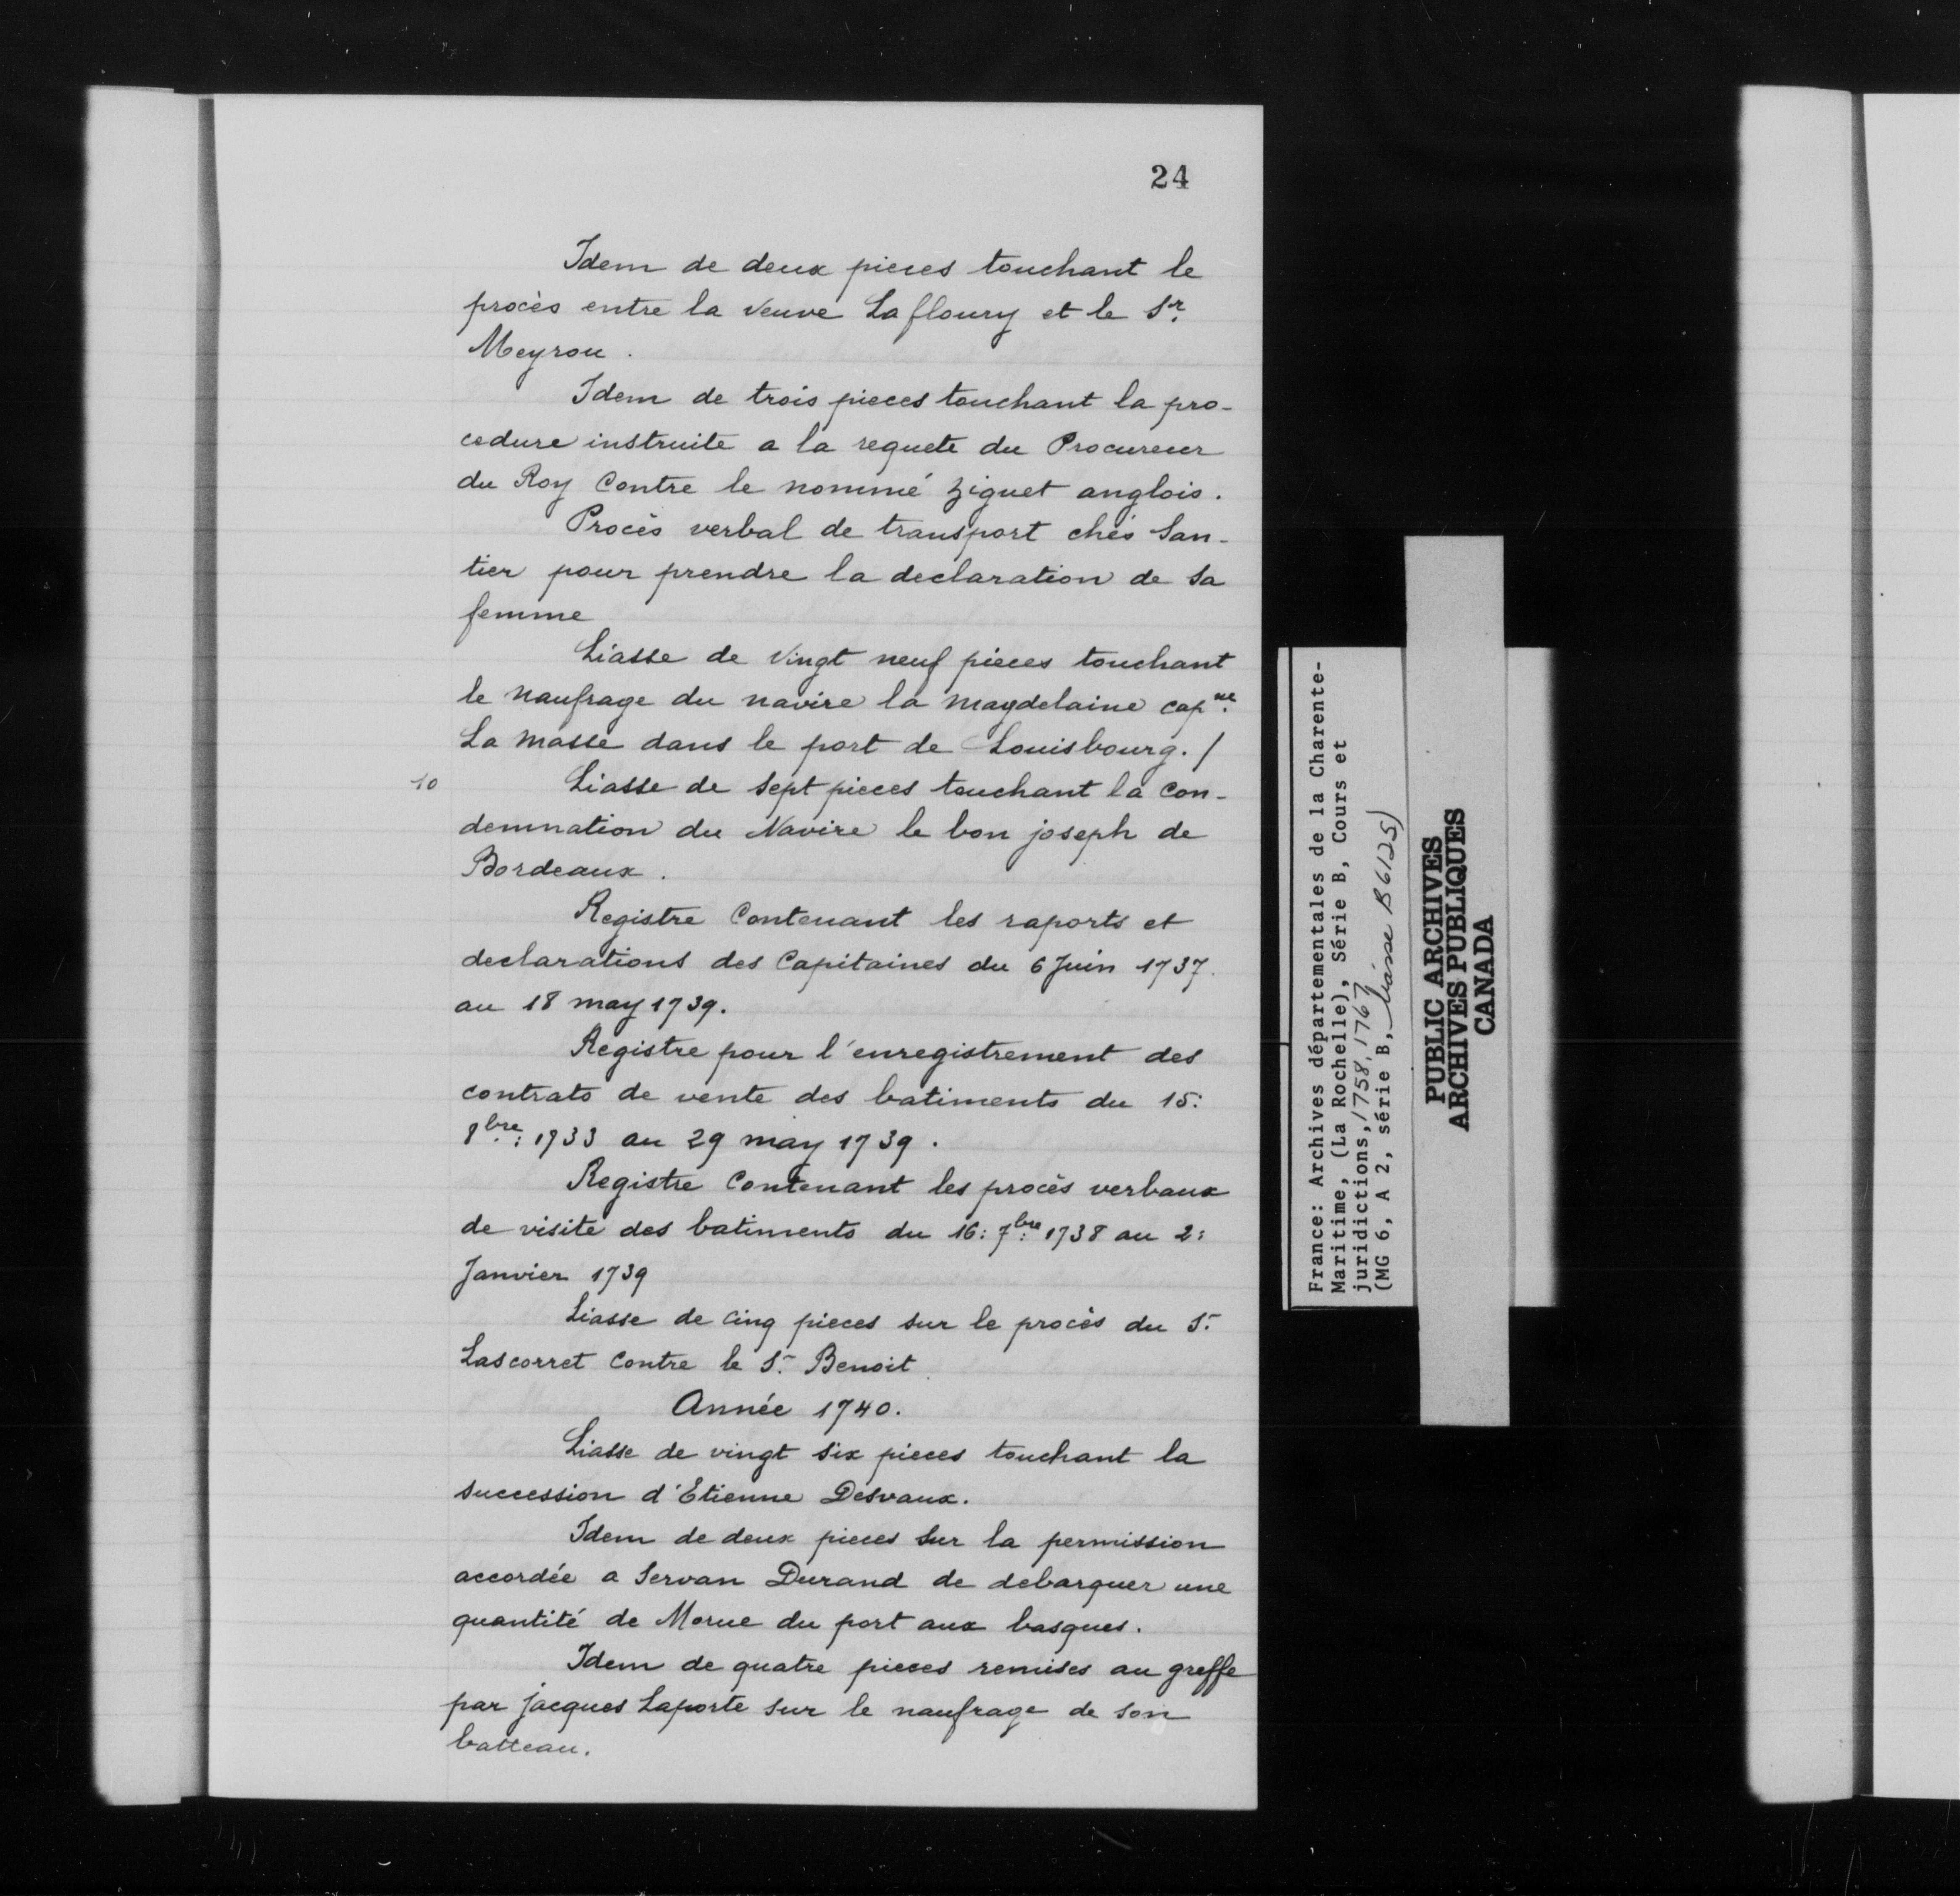 24
Idem de deux pieces touchant le
procès entre la veuve Lafloury et le Sr.
Meyrou.
Idem de trois pieces touchant la pro-
cedure instruite a la requete du Procureur
du Roy Contre le nommé ziguet anglois.
Procès verbal de transport chés San-
tier pour prendre la declaration de sa
femme
Liasse de Vingt neuf pieces touchant
le naufrage du navire la magdelaine capne.
La Masse dans le port de Louisbourg./
10 Liasse de sept pieces touchant la Con-
demnation du Navire le bon joseph de
Bordeaux.
Registre Contenant les raports et
declarations des Capitaines du 6 Juin 1737.
au 18 may 1739.
Registre pour l'enregistrement des
contrats de vente des batiments du 15:
8bre: 1733 au 29 may 1739.
Registre Contenant les procès verbaux
de visite des batiments du 16: 7bre: 1738 au 2:
Janvier 1739
Liasse de Cinq pieces sur le procès du S.
Lascorret Contre le S. Benoit.
Année 1740.
Liasse de vingt six pieces touchant la
succession d'Etienne Desvaux.
Idem de deux pieces sur la permission
accordée a Servan Durand de debarquer une
quantité de Morue du port aux basques.
Idem de quatre pieces remises au greffe
par jacques Laporte sur le naufrage de son
batteau.
France: Archives départementales de la Charente-
Maritime, (La Rochelle), Série B, Cours et
juridictions, 1758, 1767
(MG 6, A 2, série B, liasse B6125)
PUBLIC ARCHIVES
ARCHIVES PUBLIQUES
CANADA